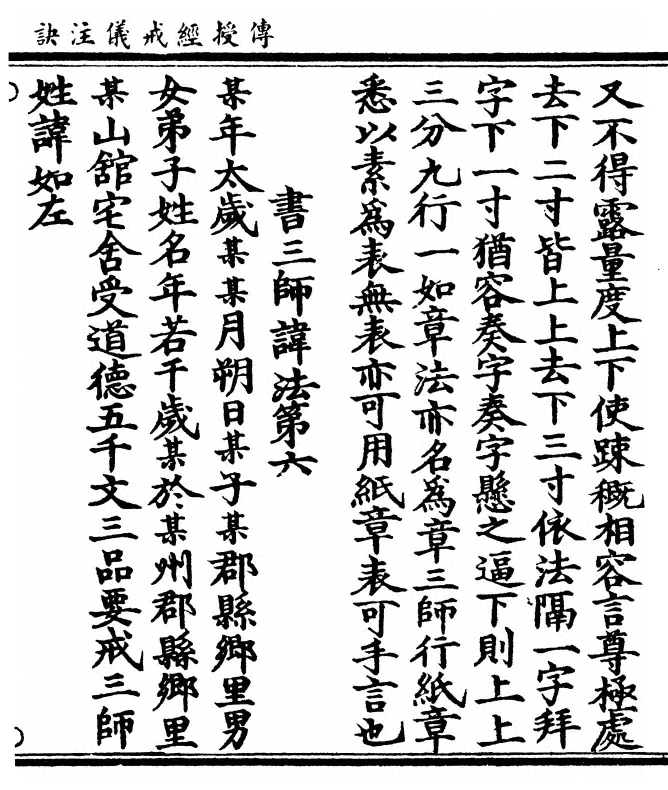 傳授經戒儀注訣
又不得露量度上下使踈穊相容言尊極處
去下二寸皆上上去下三寸依法隔一字拜
字下一寸猶容奏字奏字懸之逼下則上上
三分九行一如章法亦名爲章三師行紙章
悉以素爲表無表亦可用紙章表可手言也
書三師諱法第六
某年太歲某某月朔日某子某郡縣鄉里男
女弟子姓名年若干歲某於某州郡縣鄉里
某山舘宅舍受道德五千文三品要戒三師
姓諱如左